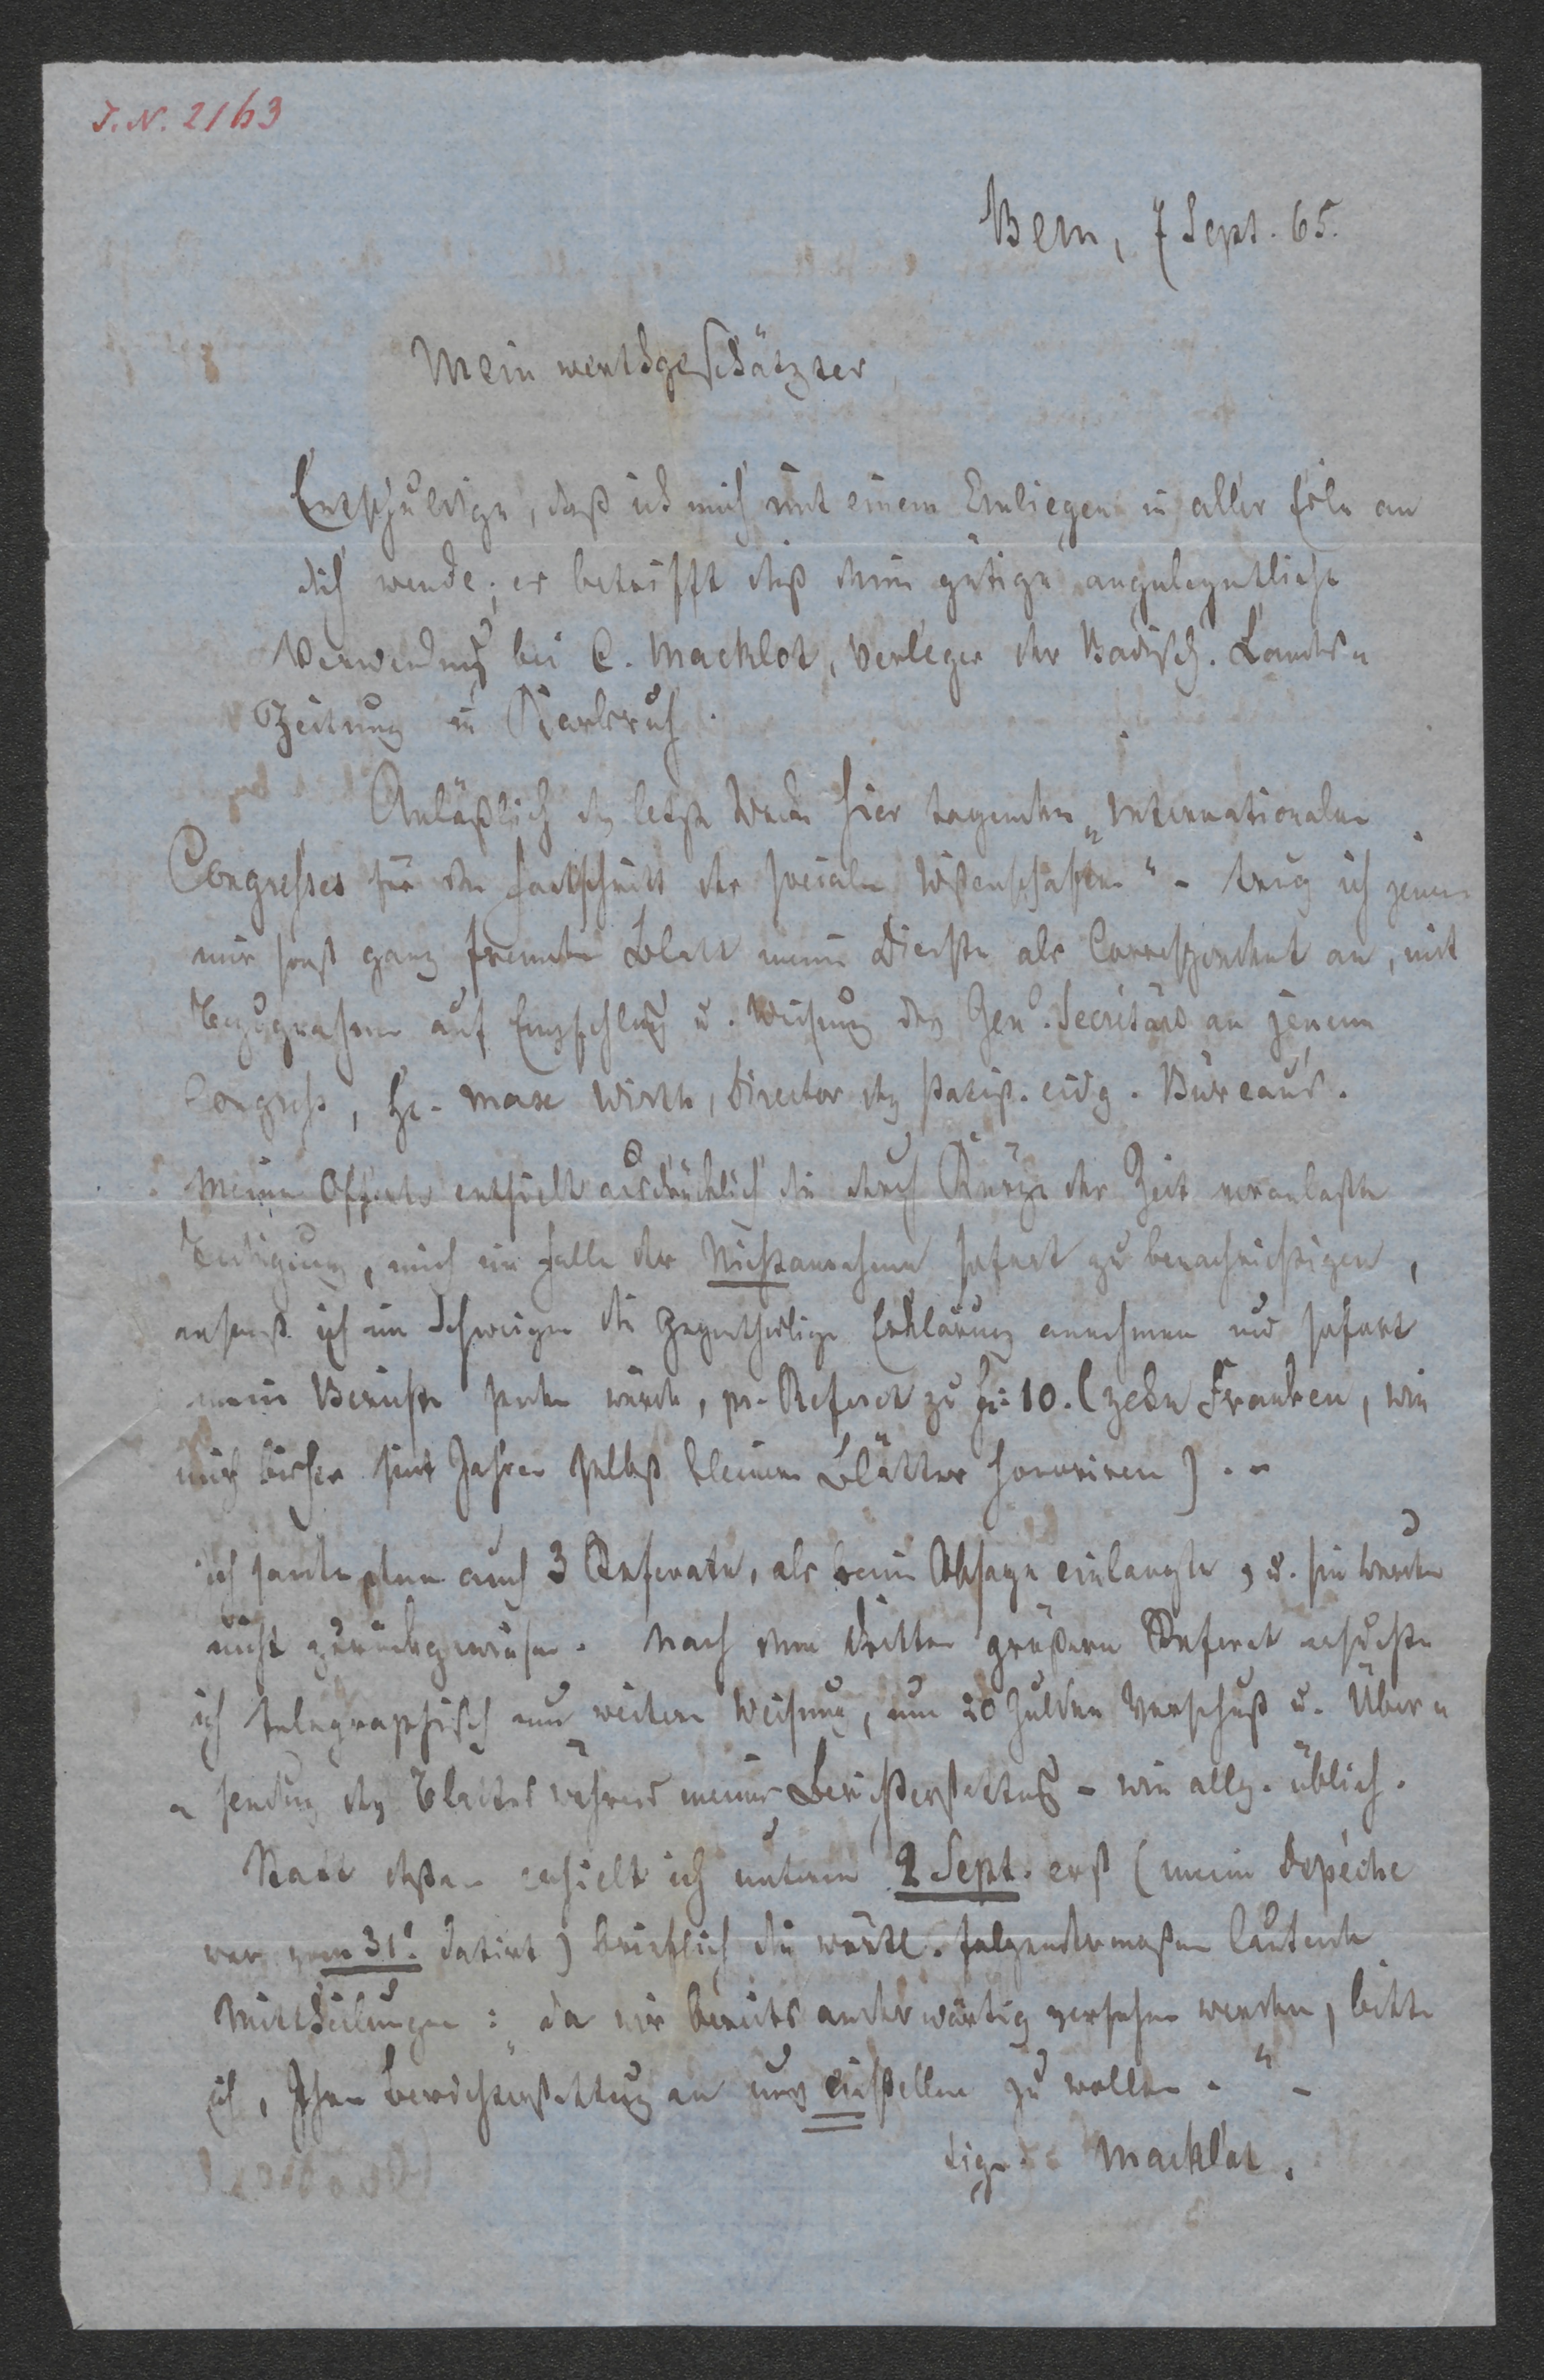 J. N. 2163
Bern, 7 Sept. 65.
Mein werthgeschätzter
Entschuldige, daß ich mich mit einem Anliegen in aller Eile an
dich wende; es betrifft dieß deine gütige angelegentliche
Verwendung bei C. Macklot, Verleger der Badisch. Landes-
Zeitung in Karlsruh.
Anläßlich des letzte Woche hier tagenden „Internationalen
Congresses für den Fortschritt der socialen Wissenschaften" - trug ich jenem
mir sonst ganz fremden Blatt meine Dienste als Correspondent an, mit
Bezugnahme auf Empfehlung u. Weisung des Gen. Secretärs an jenem
Congreß, Hr. Max Wirth, Director des statist. eidg. Bureau's.
Meine Offerte enthielt ausdrücklich die durch Kürze der Zeit veranlaßte
Bedingung, mich im Falle der Nichtannahme sofort zu benachrichtigen,
ansonst ich im Schweigen die gegentheilige Erklärung annehmen und sofort
meine Berichte senden würde, pr. Referat zu Fr. 10. (zehn Franken, wie
mich bisher seit Jahren selbst kleinere Blätter honoriren). -
ich sandte denn auch 3 Referate, als keine Absage einlangte, u. sie wurden
nicht zurückgewiesen. Nach dem dritten größern Referat ersuchte
ich telegraphisch um weitere Weisung, um 20 Gulden Vorschuß u. Über-
- sendung des Blattes während meiner Berichterstattung - wie allg. üblich.
Statt dessen erhielt ich unterm 2 Sept. erst (meine Depêche
war vom 31. datirt) brieflich die wörtl. folgendermaßen lautende
Mittheilungen: „da wir bereits anderwärtig versehen werden, bitte
ich, Ihre Berichterstattung an uns einstellen zu wollen." -
Sign. Macklot.